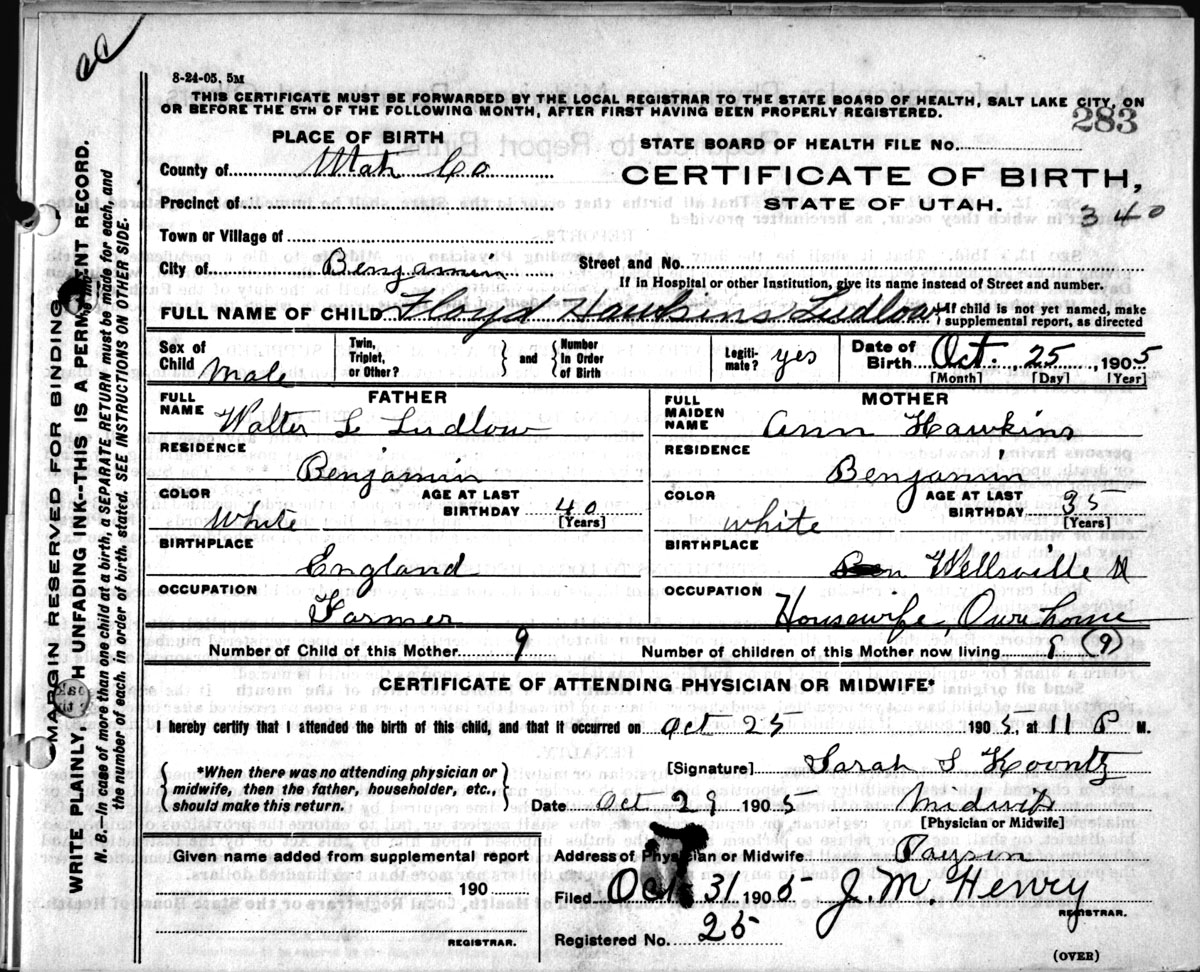 8-24-05. 5M
THIS CERTIFICATE MUST BE FORWARDED BY THE LOCAL REGISTRAR TO THE STATE BOARD OF HEALTH, SALT LAKE CITY, ON
OR BEFORE THE 5TH OF THE FOLLOWING MONTH, AFTER FIRST HAVING BEEN PROPERLY REGISTERED.
283
PLACE OF BIRTH
STATE BOARD OF HEALTH FILE No.
County of Utah Co
CERTIFICATE OF BIRTH,
Precinct of
STATE OF UTAH.
340
Town or Village of
City of Benjamin Street and No.
If in Hospital or other Institution, give its name instead of Street and number.
FULL NAME OF CHILD Floyd Hawkins Ludlow If child is not yet named, make supplemental report, as directed
Sex of Child Male Twin, Triplet, or Other? } and { Number In Order of Birth Legiti-mate? yes Date of Birth Oct. 25, 1905
[Month] [Day] [Year]
FATHER
MOTHER
FULL NAME Walter L Ludlow
FULL MAIDEN NAME Ann Hawkins
RESIDENCE Benjamin
RESIDENCE Benjamin
COLOR White AGE AT LAST BIRTHDAY 40 [Years]
COLOR white AGE AT LAST BIRTHDAY 35 [Years]
BIRTHPLACE England
BIRTHPLACE Wellsville
OCCUPATION Farmer
OCCUPATION Housewife, Own home
Number of Child of this Mother 9 Number of children of this Mother now living 8 (9)
CERTIFICATE OF ATTENDING PHYSICIAN OR MIDWIFE*
I hereby certify that I attended the birth of this child, and that it occurred on Oct 25 1905, at 11 P M.
*When there was no attending physician or
midwife, then the father, householder, etc.,
should make this return.
[Signature] Sarah S Koontz
Date Oct 29 1905 Midwife
[Physician or Midwife]
Given name added from supplemental report
190
REGISTRAR.
Address of Physician or Midwife Payson
Filed Oct 31 1905 J. M. Henry
REGISTRAR.
Registered No. 25
(OVER)
MARGIN RESERVED FOR BINDING
WRITE PLAINLY, H UNFADING INK--THIS IS A PERMANENT RECORD.
N. B.--In case of more than one child at a birth, a SEPARATE RETURN must be made for each, and
the number of each, in order of birth, stated. SEE INSTRUCTIONS ON OTHER SIDE.